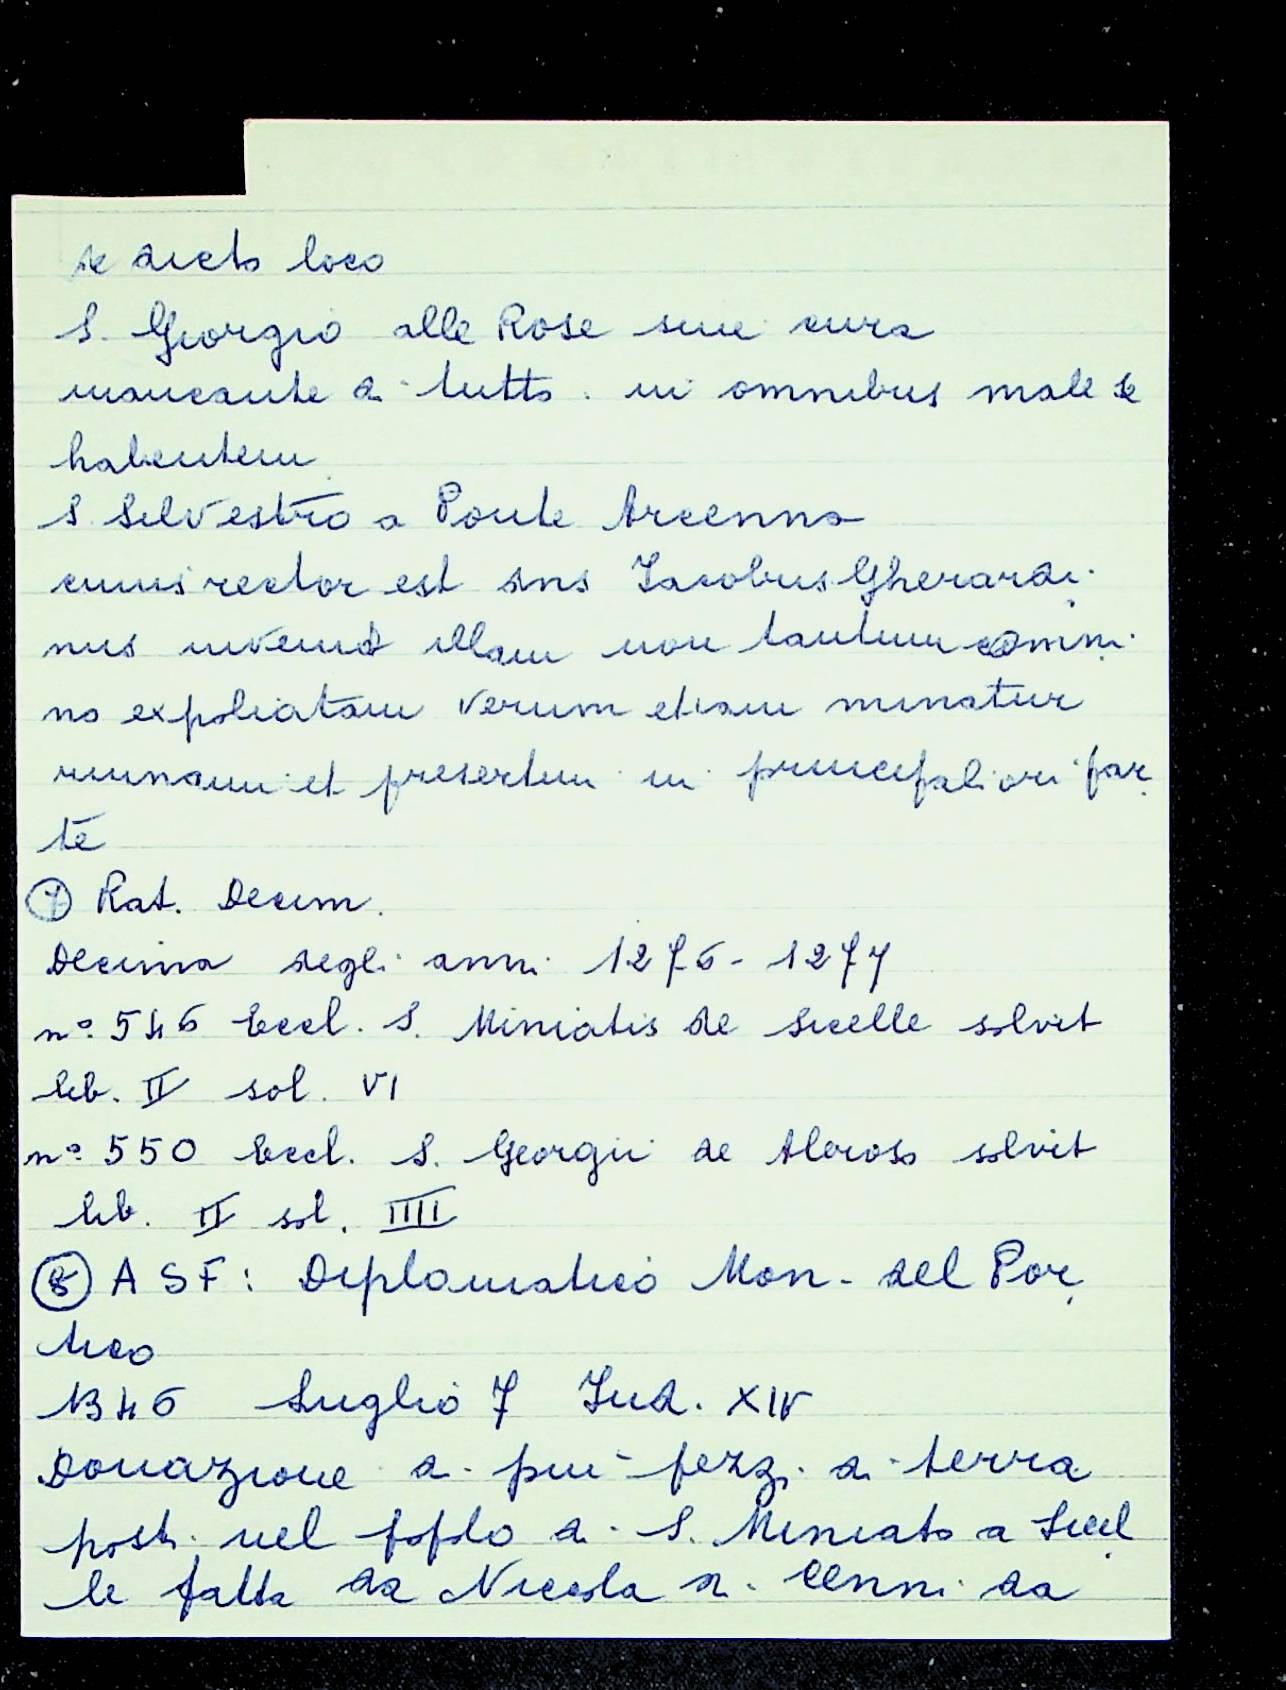 de dicto loco
S. Giorgio alle Rose sine cura
mancante di tutto. in omnibus male se
habentem
S. Silvestro a Ponte Arcenno
cuius rector est dns Iacobus Gherardi
nus invenit illam non tantum omni
no expoliatam verum etiam minatur
ruinam et presertim in principaliori par
te
⑦ Rat. Decim.
Decima degli anni 1276-1277
n° 546 Eccl. S. Miniatis de Sicelle solvit
lib. II sol. VI
n° 550 Eccl. S. Georgii de Aloroso solvit
lib. II sol. IIII
⑧ ASF: Diplomatico Mon. del Por
tico
1346 Luglio 7 Ind. XIV
Donazione di piu pezzi di terra
posti nel popolo di S. Miniato a Sicel
le fatta da Niccola di Cenni da